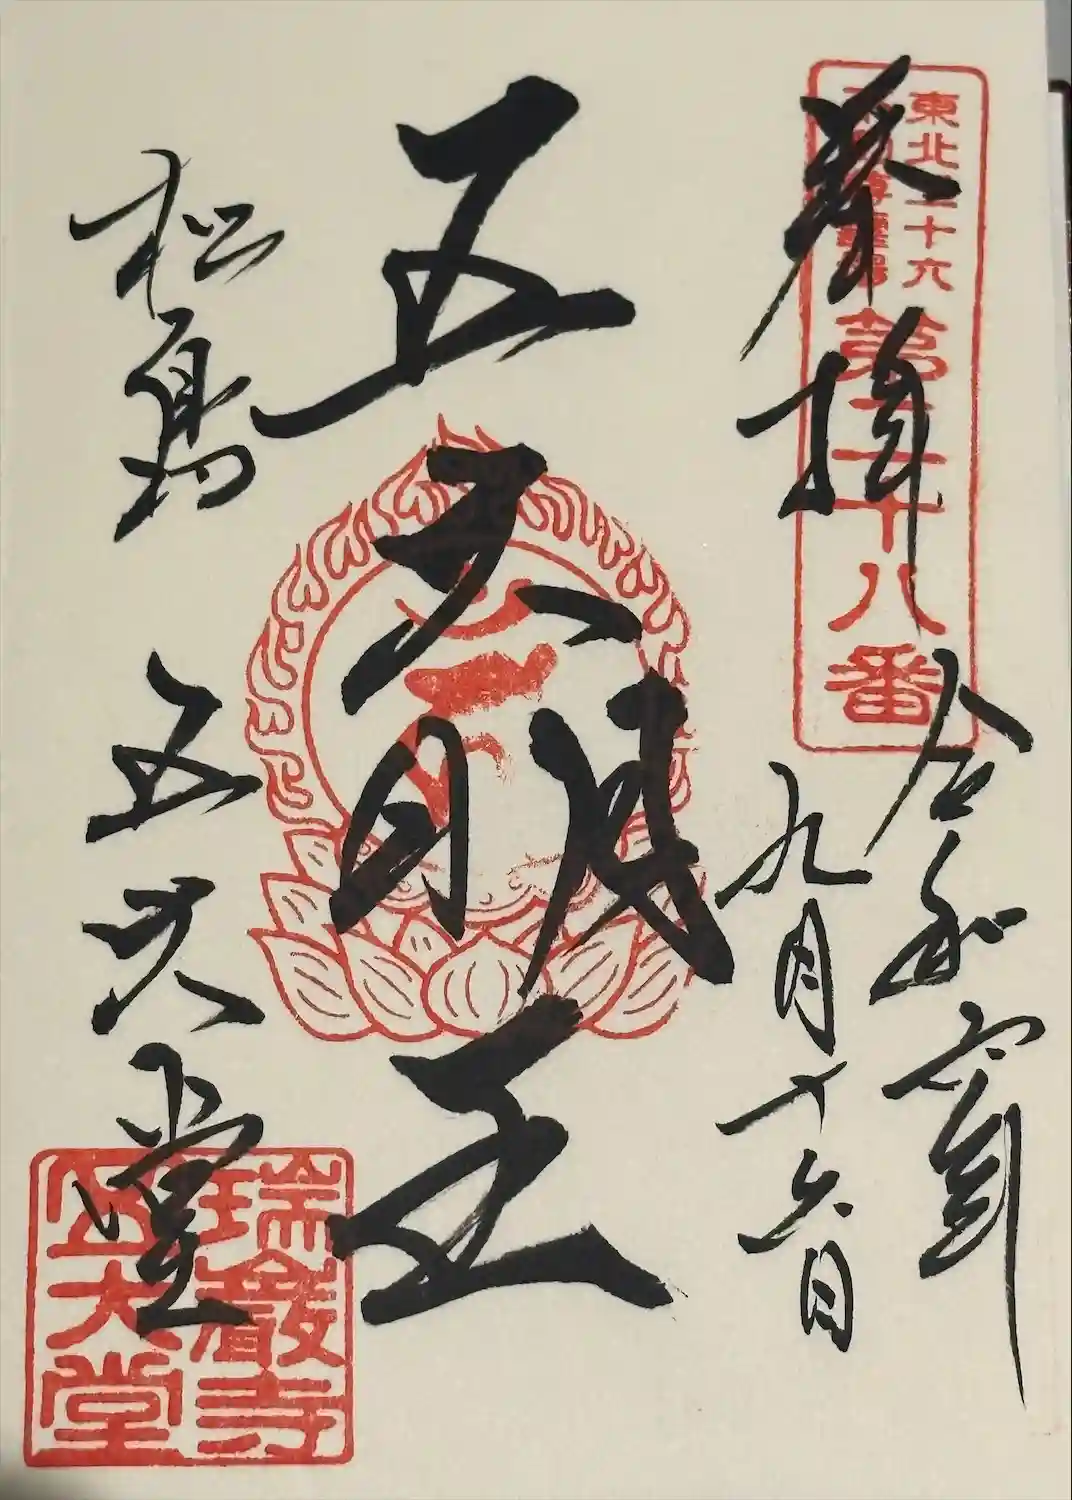 東北三十六
不動尊靈場
第二十八番
奉拝
令和
九月十六日
五大明王
松島
五大堂
瑞巖寺
五大堂